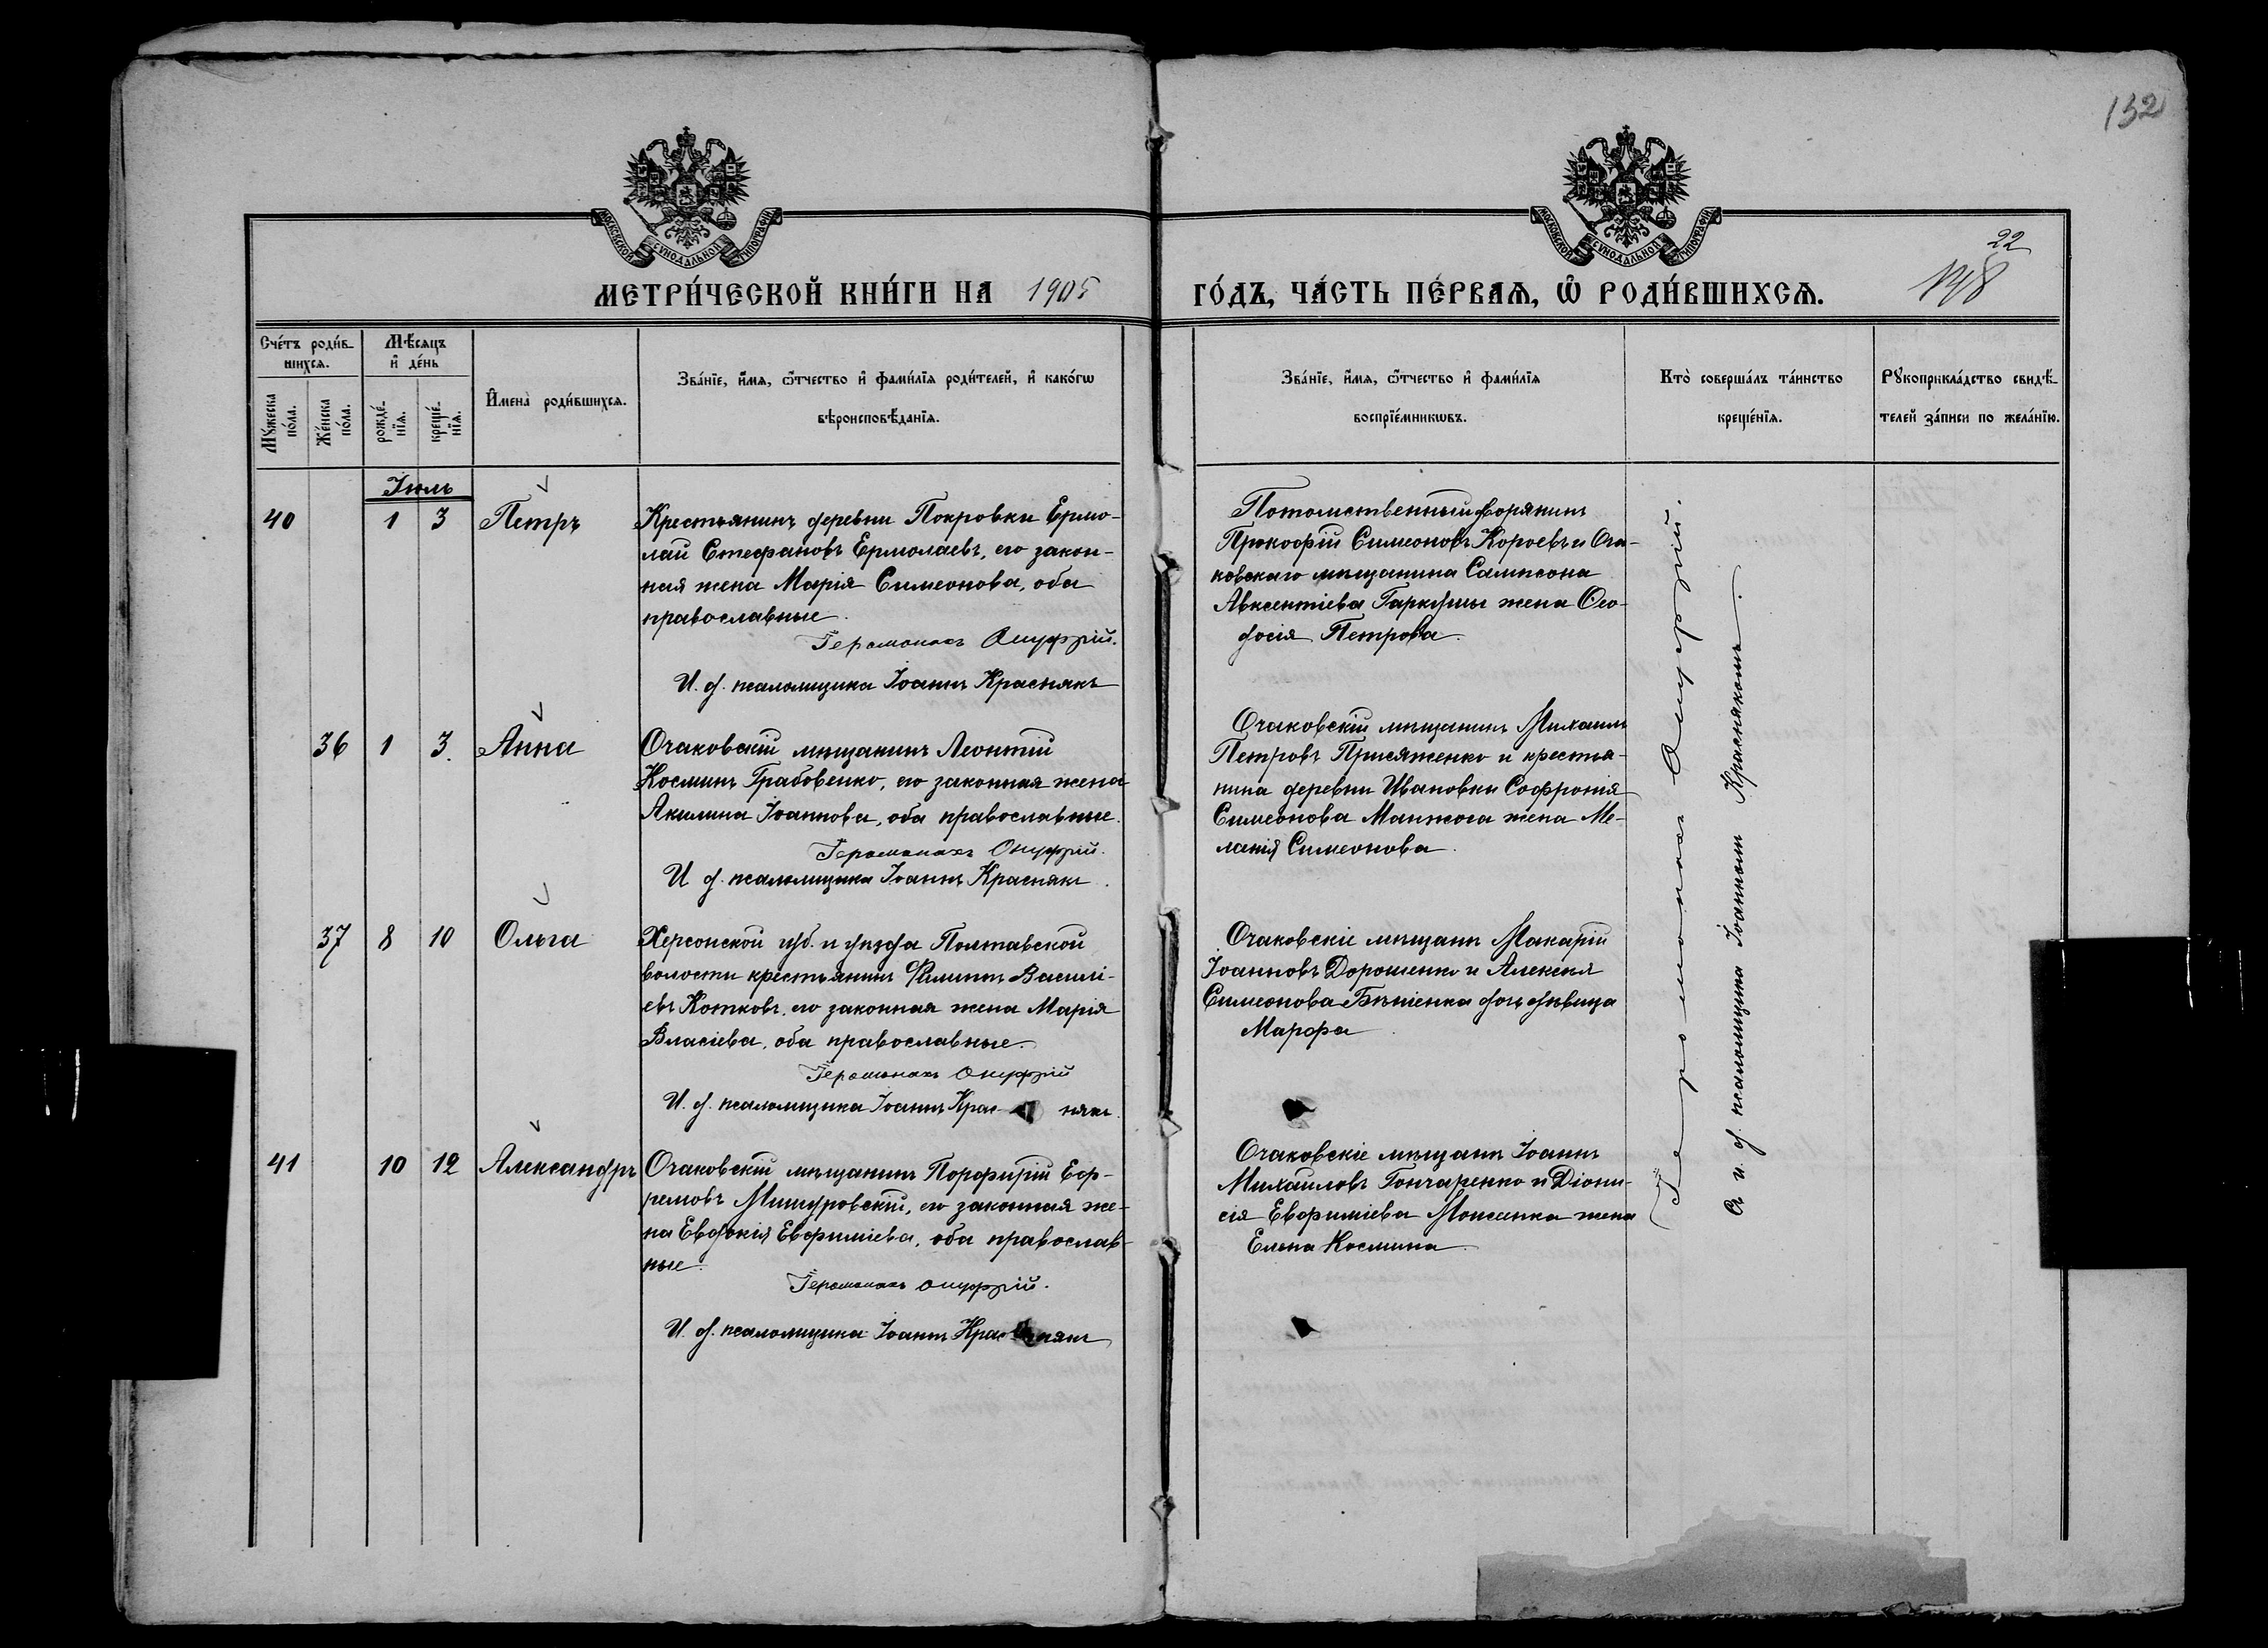 132
МОСКОВСКОЙ СѴНОДАЛЬНОЙ ТИПОГРАФІИ
МОСКОВСКОЙ СѴНОДАЛЬНОЙ ТИПОГРАФІИ
22
МЕТРИ́ЧЕСКОЙ КНИ́ГИ НА 1905
ГО́ДЪ, ЧА́СТЬ ПЕ́РВАѦ, Ѽ РОДИ́ВШИХСѦ.
148
Сче́тъ роди́в-
шихсѧ.
Мꙋ́жеска по́ла.
Же́нска по́ла.
Мѣ́сѧцъ
и҆ де́нь
рожде́-нїѧ.
креще́-нїѧ.
И҆мена̀ роди́вшихсѧ.
Зва́нїе, и҆́мѧ, ѻ҆́тчество и҆ фами́лїѧ роди́телей, и҆ како́гѡ
вѣроисповѣ́данїѧ.
Зва́нїе, и҆́мѧ, ѻ҆́тчество и҆ фами́лїѧ
воспрїе́мникѡвъ.
Кто̀ соверша́лъ та́инство
креще́нїѧ.
Рꙋкоприкла́дство свидѣ́-
телей за́писи по жела́нїю.
Іюль
40 1 3 Петръ
Крестьянинъ деревни Покровки Ермо-
лай Стефановъ Ермолаевъ, его закон-
ная жена Марія Симеонова, оба
православные.
Іеромонахъ Онуфрій.
И. д. псаломщика Іоаннъ Краснякъ
Потомственный дворянинъ
Прокофій Симеоновъ Короевъ и Оча-
ковскаго мѣщанина Сампсона
Авксентіева Гаркуши жена Ѳео-
досія Петрова.
36 1 3. Анна
Очаковскій мѣщанинъ Леонтій
Космин Грабовенко, его законная жена
Акилина Іоаннова, оба православные.
Іеромонахъ Онуфрій.
И д. псаломщика Іоаннъ Краснякъ.
Очаковскій мѣщанинъ Михаилъ
Петровъ Присяженко и крестья-
нина деревни Ивановки Софронія
Симеонова Манжоса жена Ме-
ланія Симеонова.
37 8 10 Ольга
Херсонской губ. и уѣзда Полтавской
волости крестьянинъ Филиппъ Василі-
евъ Котковъ, его законная жена Марія
Власіева, оба православные.
Іеромонахъ Онуфрій
И. д. псаломщика Іоаннъ Крас някъ.
Очаковскіе мѣщане Макарій
Іоанновъ Дорошенко и Алексія
Симеонова дочь дѣвица
Марфа.
41 10 12 Александръ
Очаковскій мѣщанинъ Порфирій Еф-
ремовъ Мишуровскій, его законная же-
на Евдокія Евфиміева, оба православ-
ные.
Іеромонахъ Онуфрій.
И. д. псаломщика Іоаннъ Краснякъ
Очаковскіе мѣщане Іоаннъ
Михаиловъ Гончаренко и Діони-
сія Евфиміева жена
Елена Космина.
Іеромонахъ Онуфрій.
и. д. псаломщика Іоанномъ Краснякомъ.